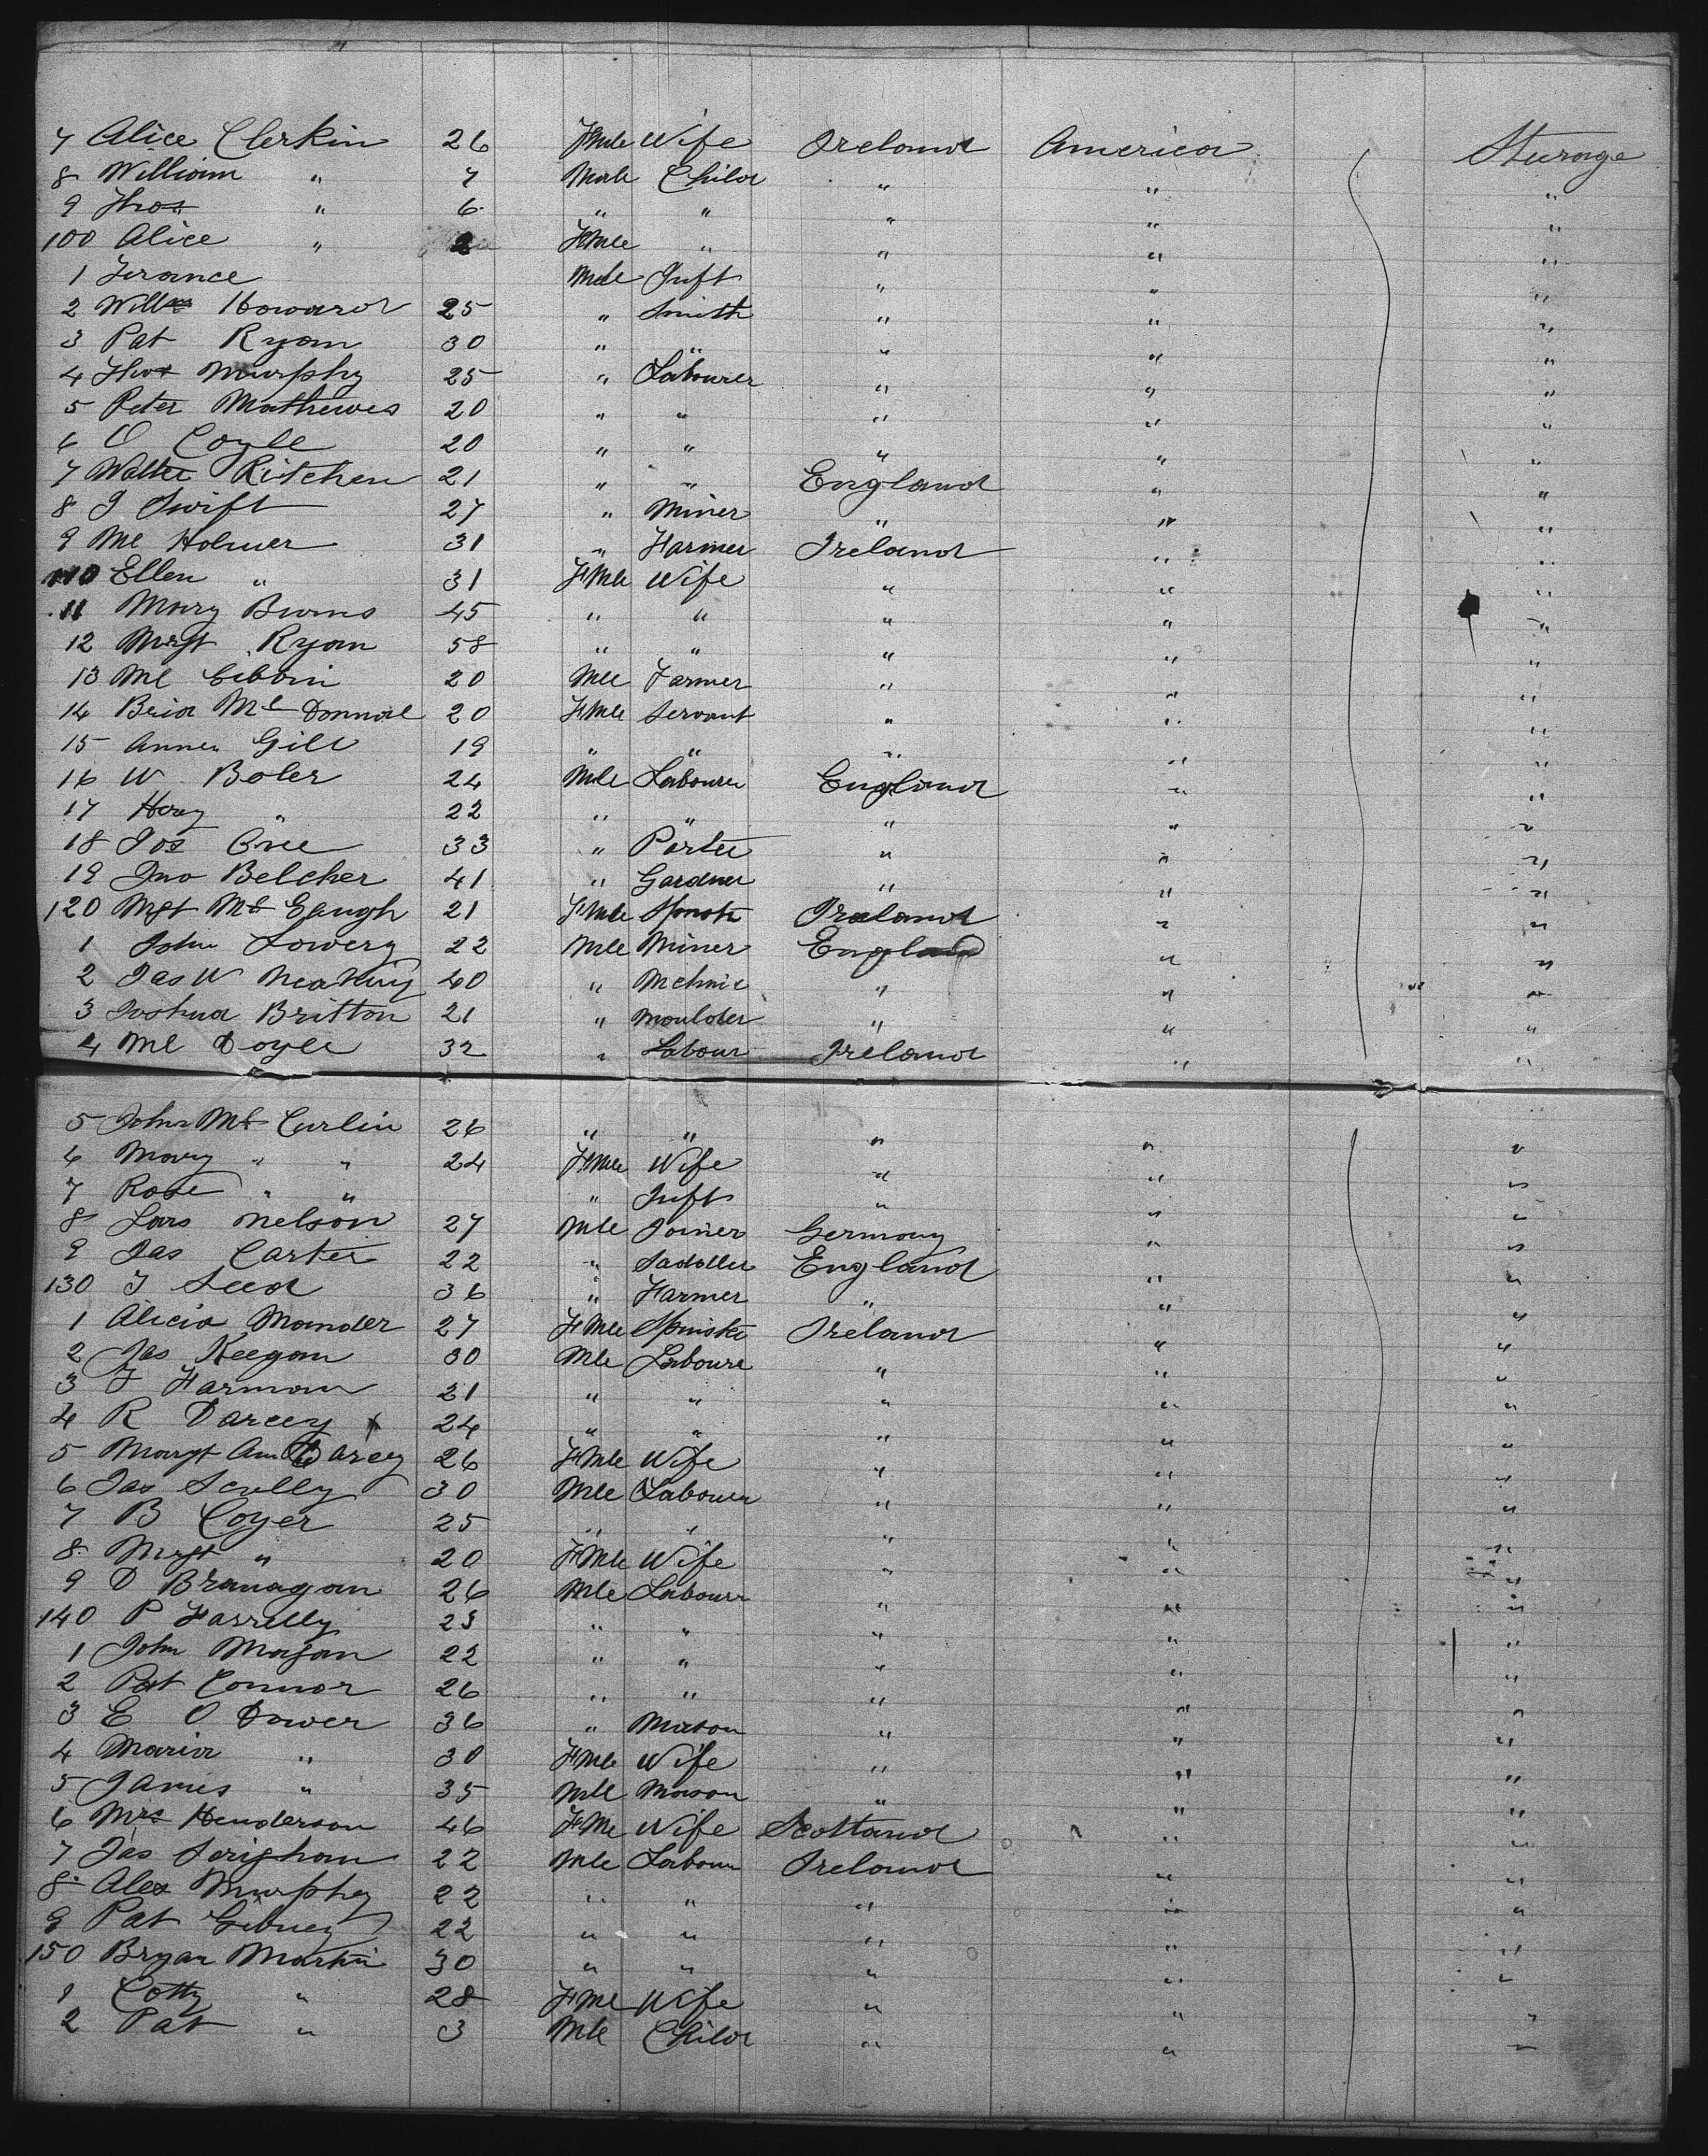 7 Alice Clerkin 26 Fmle Wife Ireland America Steerage
8 William " 7 Male Child " " "
9 Thos " 6 " " " " "
100 Alice " 2 Fmle " " " "
1 Terance Male Inft " " "
2 Willm Howard 25 " Smith " " "
3 Pat Ryan 30 " " " " "
4 Thos Murphy 25 " Labourer " " "
5 Peter Mathewes 20 " " " " "
6 O Coyle 20 " " " " "
7 Walter Kitchen 21 " " England " "
8 J Swift 27 " Miner " " "
9 Ml Holmer 31 " Farmer Ireland " "
110 Ellen " 31 Fmle Wife " " "
11 Mary Burns 45 " " " " "
12 Mrgt Ryan 58 " " " " "
13 Ml Gibbin 20 Mle Farmer " " "
14 Brid Mc Donnal 20 Fmle Servant " " "
15 Annen Gill 19 " " " " "
16 W Boler 24 Mle Labourer England " "
17 Hary " 22 " " " " "
18 Jos 33 " Porter " " "
19 Jno Belcher 41 " Gardner " " "
120 Mgt Mc Gaugh 21 Fmle Spnstr Ireland " "
1 John Lowery 22 Mle Miner England " "
2 Jas W Meaking 40 " Mchnic " " "
3 Joshua Britton 21 " Moulder " " "
4 Ml Doyle 32 " Labour Ireland " "
5 John Mc Curlin 26 " " " " "
6 Mary " " 24 Fmle Wife " " "
7 Rose " " " Inft " " "
8 Lars Nelson 27 Mle Joiner Germany " "
9 Jas Carter 22 " Saddler England " "
130 J Seed 36 " Farmer " " "
1 Alicia Mander 27 Fmle Spinstr Ireland " "
2 Jas Keegan 30 Mle Laboure " " "
3 F Harman 21 " " " " "
4 R Darcey 24 " " " " "
5 Margt Ann Darcey 26 Fmle Wife " " "
6 Jas Scully 30 Mle Labourer " " "
7 B Coyer 25 " " " " "
8 Mrgt " 20 Fmle Wife " " "
9 D Branagan 26 Mle Labourr " " "
140 P Farrelly 23 " " " " "
1 John Magan 22 " " " " "
2 Pat Connor 26 " " " " "
3 E O Dower 36 " Mason " " "
4 Maria " 30 Fmle Wife " " "
5 James " 35 Mle Mason " " "
6 Mrs Henderson 46 Fmle Wife Scotland " "
7 Jas Serighan 22 Mle Labour Ireland " "
8 Alex Murphy 22 " " " " "
9 Pat Gibney 22 " " " " "
150 Bryan Martin 30 " " " " "
1 Cotty " 28 Fmle Wife " " "
2 Pat " 3 Mle Child " " "